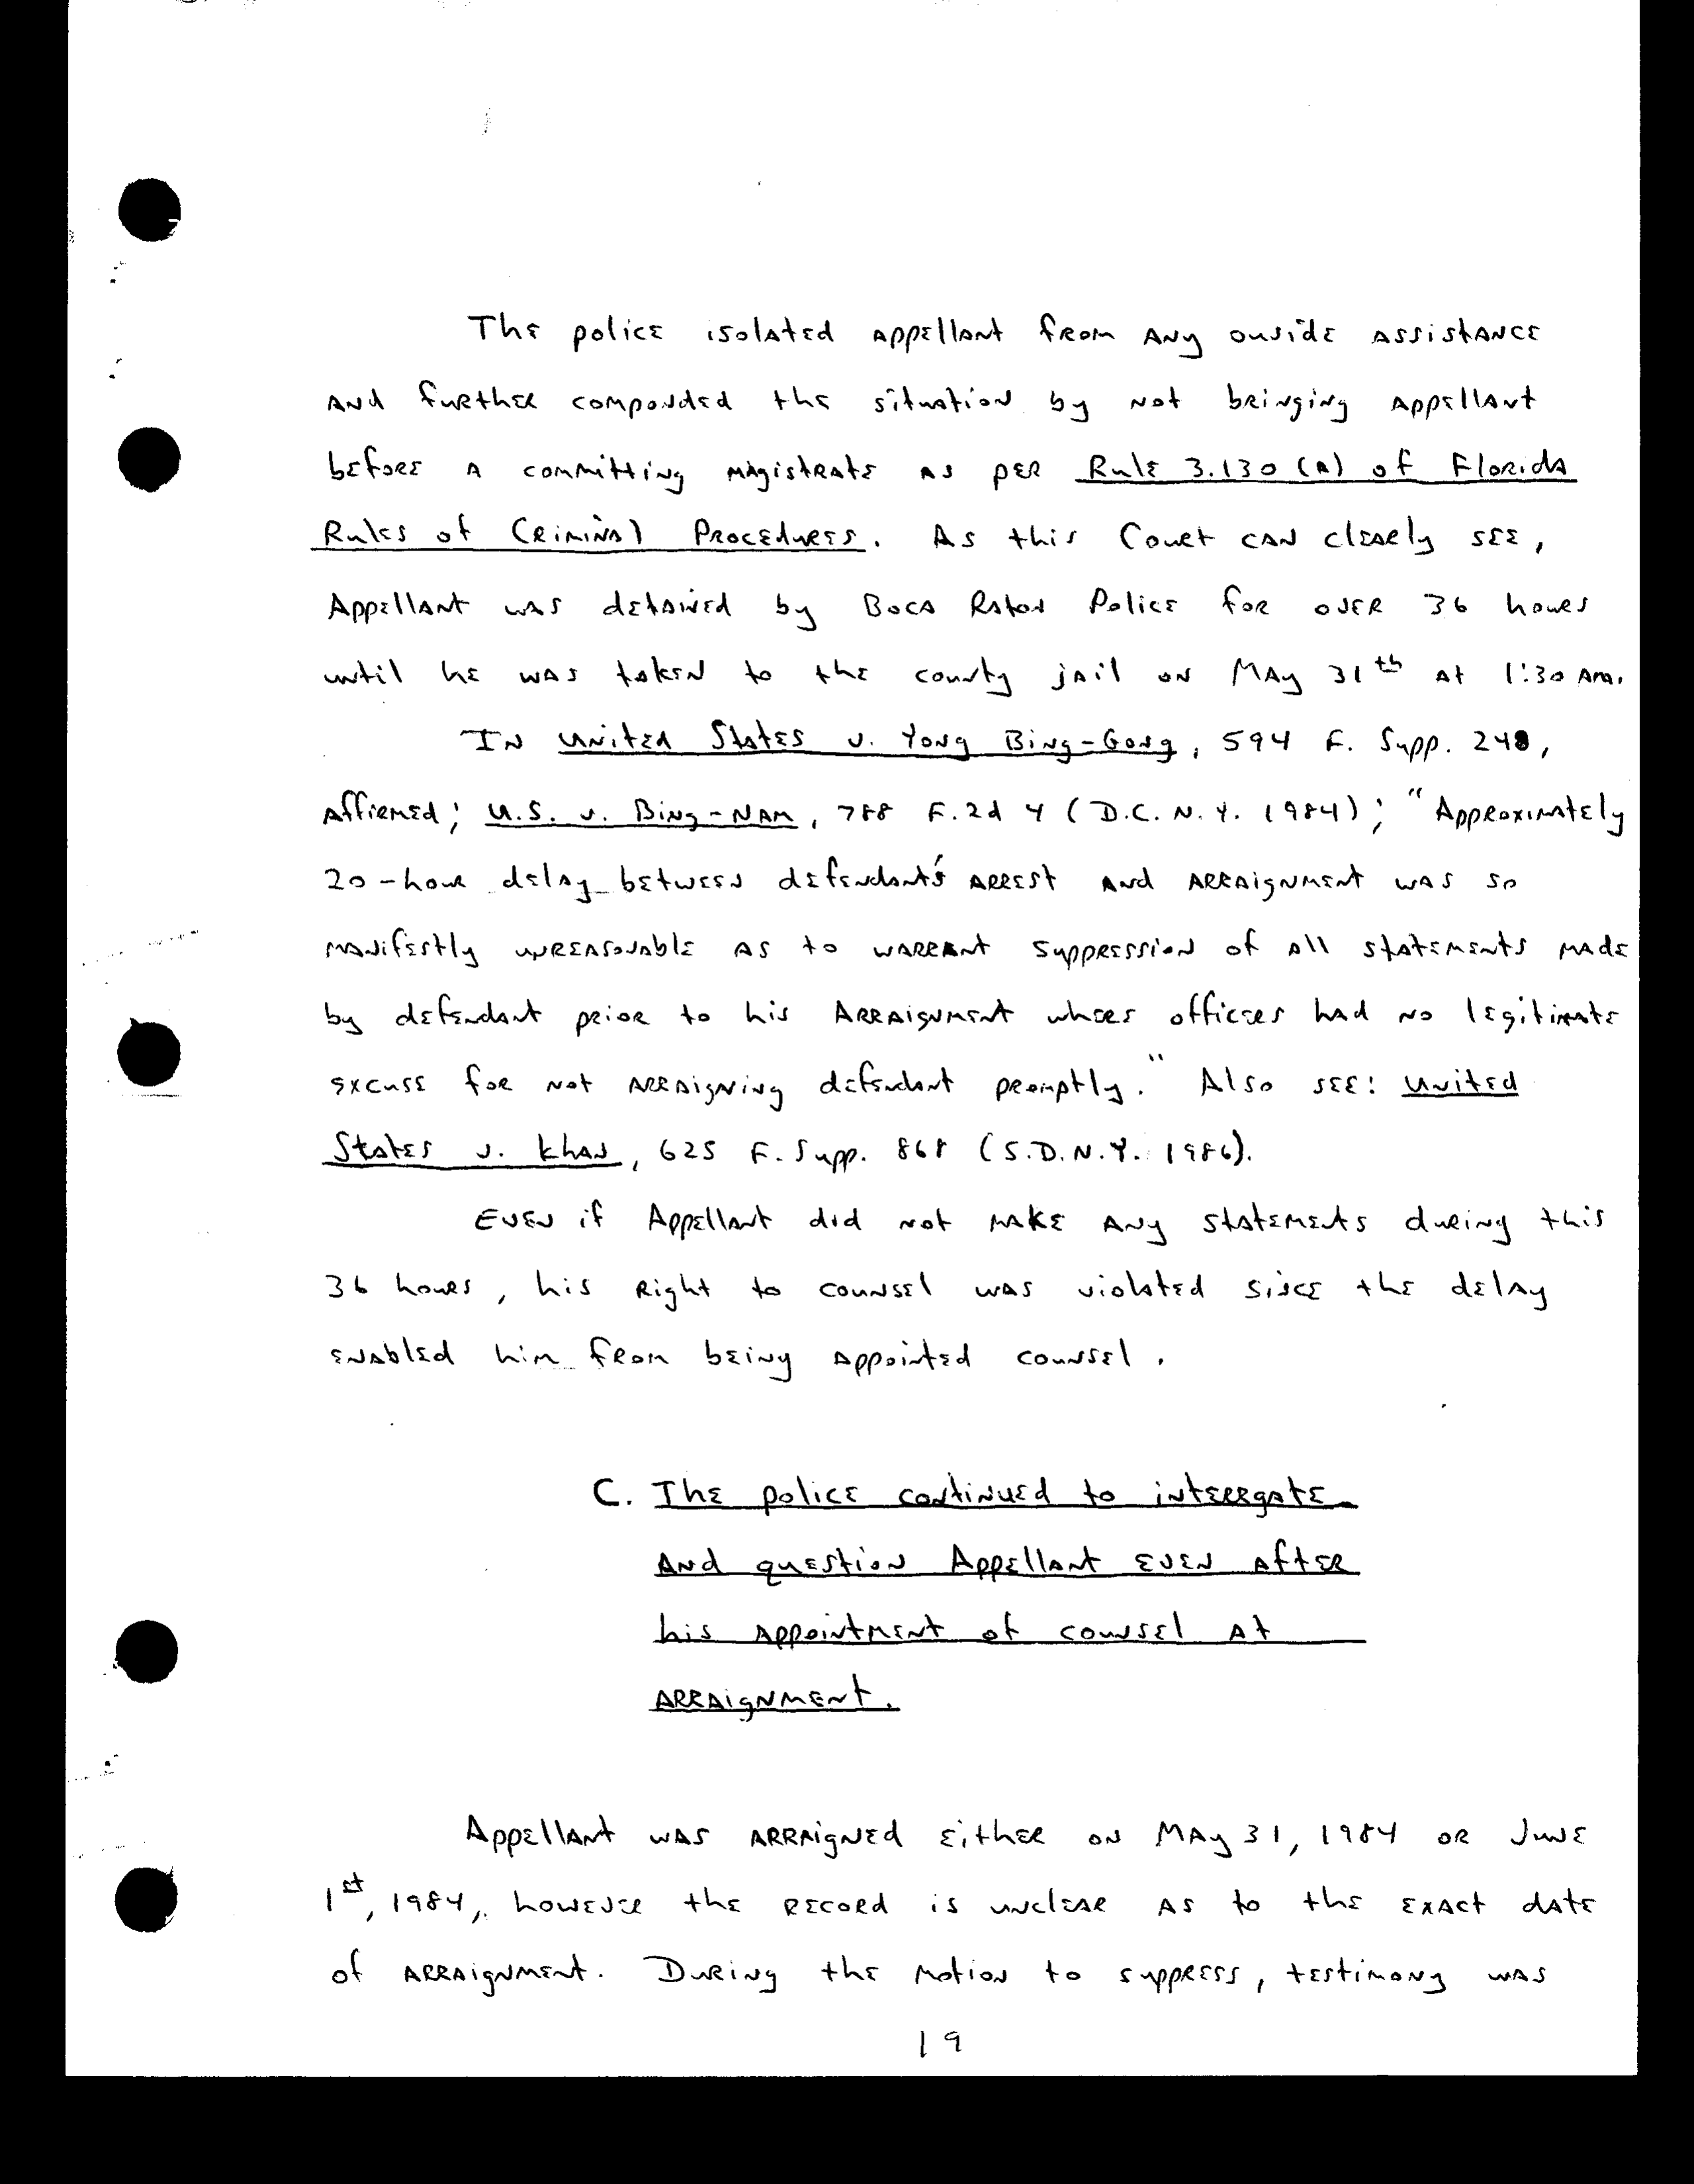 The police isolated appellant from any ouside assistance
and further compouded the situation by not bringing appellant
before a committing magistrate as per Rule 3.130 (a) of Florida
Rules of Criminal Procedures. As this Court can clearly see,
Appellant was detained by Boca Raton Police for over 36 hours
until he was taken to the county jail on May 31th at 1:30 am.
In United States v. Yong Bing-Gong, 594 F. Supp. 248,
affirmed; U.S. v. Bing-Nam, 788 F.2d 4 (D.C.N.Y. 1984); "Approximately
20-hour delay between defendant's arrest and arraignment was so
manifestly unreasonable as to warrant suppression of all statements made
by defendant prior to his arraignment where officers had no legitimate
excuse for not arraigning defendant promptly." Also see: United
States v. Khan, 625 F. Supp. 868 (S.D.N.Y. 1986).
Even if Appellant did not make any statements during this
36 hours, his right to counsel was violated since the delay
enabled him from being appointed counsel.
C. The police continued to interrgate
and question Appellant even after
his appointment of counsel at
arraignment.
Appellant was arraigned either on May 31, 1984 or June
1st, 1984, however the record is unclear as to the exact date
of arraignment. During the motion to suppress, testimony was
19